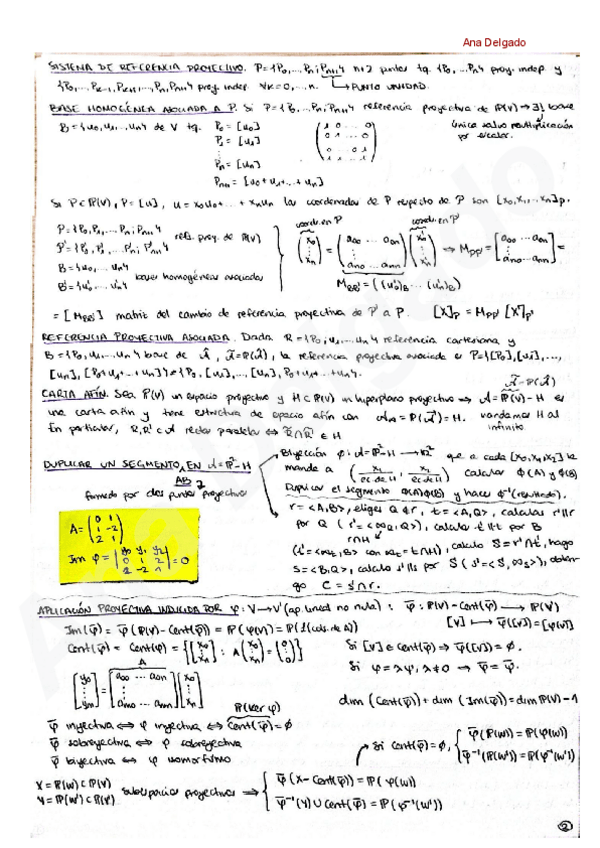 Ana Delgado
SISTEMA DE REFERENCIA PROYECTIVO. P={P0,...,Pn; Pn+1} n+2 puntos tq. {P0,...Pn} proy. indep. y
{P0,...,Pk-1, Pk+1,...,Pn, Pn+1} proy. indep. ∀k=0,...n. → PUNTO UNIDAD.
BASE HOMOGÉNEA ASOCIADA A P. Si P={P0,...Pn; Pn+1} referencia proyectiva de P(V) → ∃! base
B={u0,u1,...un} de V tq. P0=[u0] única salvo multiplicación
P1=[u1] por escalar.
⋮
Pn=[un]
Pn+1=[u0+u1+...+un]
Si P∈P(V), P=[u], u=x0u0+...+xnun las coordenadas de P respecto de P son [x0,x1,...xn]P.
coord. en P coord. en P'
P={P0,P1,...Pn; Pn+1} refs. proy. de P(V)
P'={P'0,P'1,...P'n; P'n+1}
B={u0,...un} bases homogéneas asociadas
B'={u'0,...u'n}
(x0 ⋮ xn) = (a00 ... a0n ⋮ an0 ... ann)(x'0 ⋮ x'n) ⇒ MPP' = [a00 ... a0n ⋮ an0 ... ann] =
MBB' = ((u'0)B ... (u'n)B)
= [MBB'] matriz del cambio de referencia proyectiva de P' a P. [X]P = MPP' [X']P'
REFERENCIA PROYECTIVA ASOCIADA. Dada R={P0; u1,...un} referencia cartesiana y
B={P0,u1,...un} base de Â, Ā=P(Â), la referencia proyectiva asociada es P={[P0],[u1],...,
[un], [P0+u1+...+un]}={P0,[u1],...,[un], P0+u1+...+un}.
CARTA AFÍN. Sea P(V) un espacio proyectivo y H⊂P(V) un hiperplano proyectivo ⇒ A=P(V)-H es
Ā=P(Â)
una carta afín y tiene estructura de espacio afín con A∞=P(A)=H. mandamos H al
En particular, R,R'⊂A rectas paralelas ⇔ R̄∩R̄' ∈ H infinito.
DUPLICAR UN SEGMENTO, EN A=P²-H
AB
formado por dos puntos proyectivos
A = (0 1 1 -2 2 1)
Im φ = |y0 y1 y2 0 1 2 1 -2 1| = 0
Biyección φ: A=P²-H → R² que a cada [x0,x1,x2] le
mande a (x1/ec de H, x2/ec de H) calcular φ(A) y φ(B)
Duplicar el segmento φ(A)φ(B) y hacer φ⁻¹(resultado).
r=<A,B>, eliges Q∉r, t=<A,Q>, calculas r'∥r
por Q (r'=<∞r,Q>), calcular t'∥t por B
r∩H
(t'=<∞t,B> con ∞t=t∩H), calculo S=r'∩t', hago
s=<B,Q>, calculo s'∥s por S (s'=<S,∞s>), obten-
go C=s'∩r.
APLICACIÓN PROYECTIVA INDUCIDA POR φ: V→V' (ap. lineal no nula): φ̄: P(V)-Cent(φ̄) → P(V')
[v] ↦ φ̄([v])=[φ(v)]
Im(φ̄) = φ̄(P(V)-Cent(φ̄)) = P(φ(V)) = P(L(cols. de A))
Cent(φ̄) = Cent(φ) = {[x0 ⋮ xn] : A(x0 ⋮ xn) = (0 ⋮ 0)}
Si [v]∈Cent(φ̄) ⇒ φ̄([v])=∅.
Si φ=λφ', λ≠0 ⇒ φ̄=φ̄'.
A
[y0 ⋮ ym] = [a00 ... a0n ⋮ am0 ... amn][x0 ⋮ xn]
dim(Cent(φ̄))+dim(Im(φ̄))=dim P(V)-1
P(Ker φ)
φ̄ inyectiva ⇔ φ inyectiva ⇔ Cent(φ̄)=∅
φ̄ sobreyectiva ⇔ φ sobreyectiva
φ̄ biyectiva ⇔ φ isomorfismo
Si Cent(φ̄)=∅, { φ̄(P(W))=P(φ(W))
φ̄⁻¹(P(W'))=P(φ⁻¹(W'))
X=P(W)⊂P(V)
Y=P(W')⊂P(V') subespacios proyectivos ⇒ { φ̄(X-Cent(φ̄))=P(φ(W))
φ̄⁻¹(Y)∪Cent(φ̄)=P(φ⁻¹(W'))
2